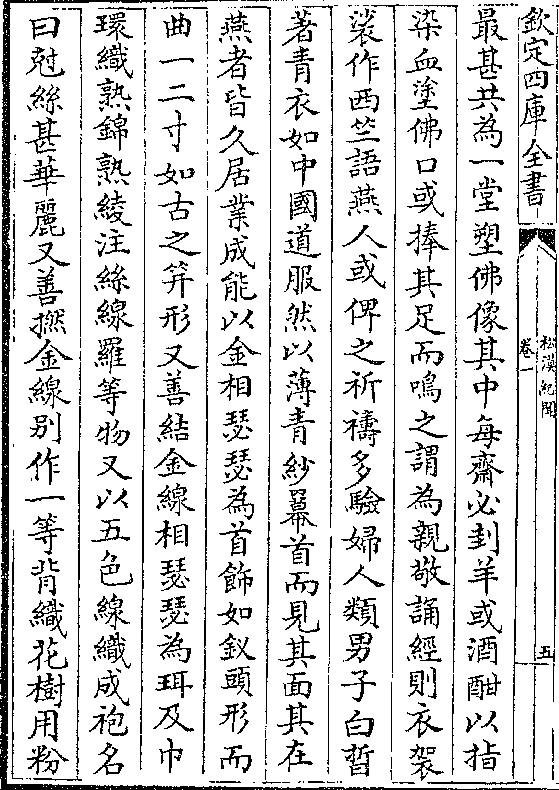 欽定四庫全書
松漠紀聞
卷一
五
最甚共為一堂塑佛像其中每齋必刲羊或酒酣以指
染血塗佛口或捧其足而鳴之謂為親敬誦經則衣袈
裟作西竺語燕人或俾之祈禱多驗婦人類男子白皙
著青衣如中國道服然以薄青紗羃首而見其面其在
燕者皆久居業成能以金相瑟瑟為首飾如釵頭形而
曲一二寸如古之笄形又善結金線相瑟瑟為珥及巾
環織熟錦熟綾注絲線羅等物又以五色線織成袍名
曰尅絲甚華麗又善撚金線别作一等背織花樹用粉